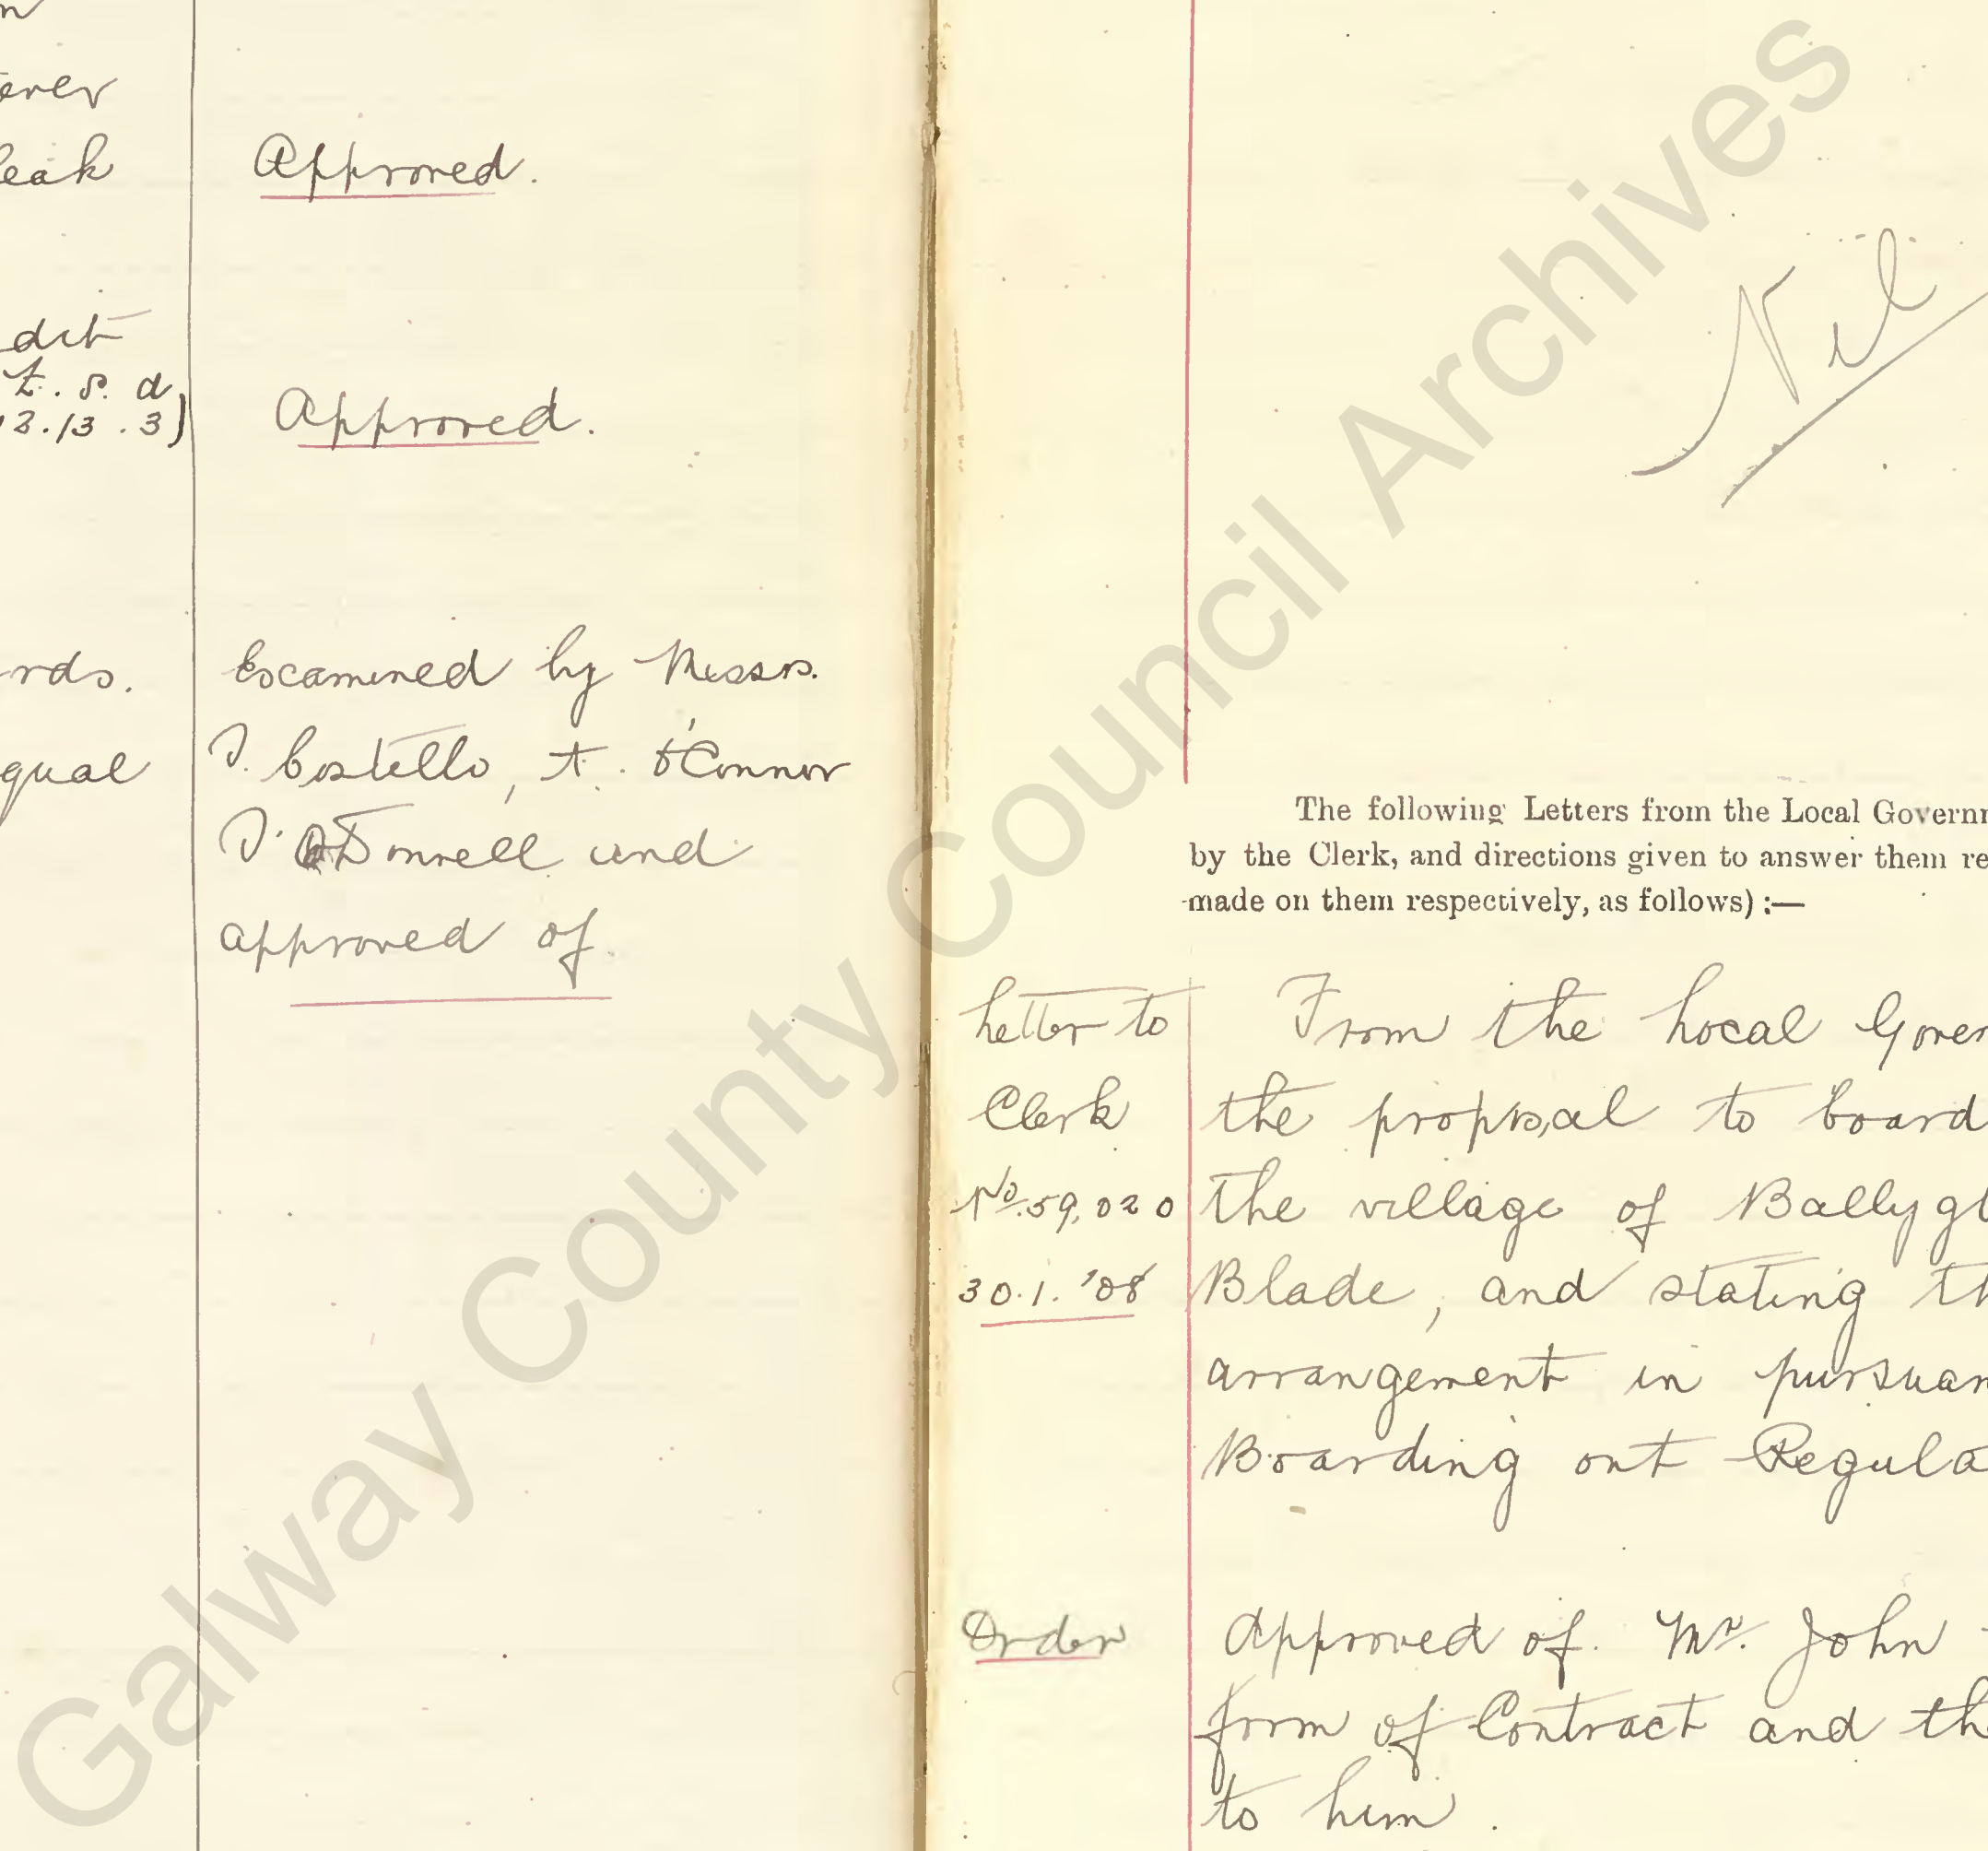 erer
leak
Approved.
dit
£. s. d
12.13.3)
Approved.
rds.
Examined by Messrs.
qual
T. Costello, T. O'Connor
T. O'Donnell and
approved of
Nil
The following Letters from the Local Governm
by the Clerk, and directions given to answer them re
made on them respectively, as follows) :—
Letter to
Clerk
No. 59,020
30.1.'08
From the Local Gover
the proposal to board
the village of Ballygl
Blade, and stating th
arrangement in pursuan
Boarding out Regula
Order
Approved of. Mr. John
form of Contract and th
to him.
Galway County Council Archives